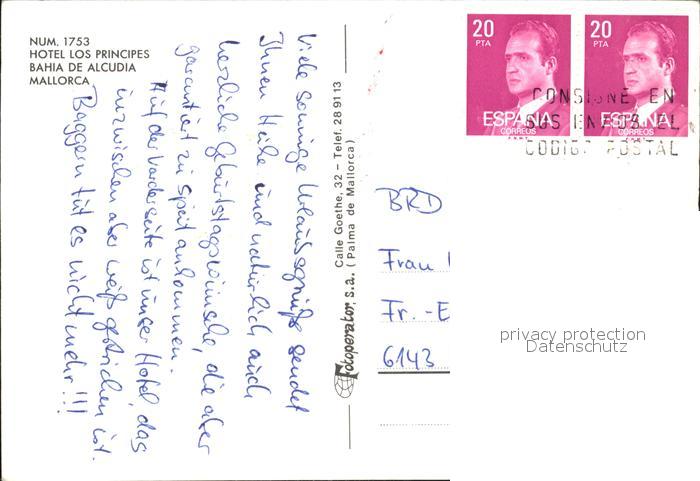 NUM. 1753
HOTEL LOS PRINCIPES
BAHIA DE ALCUDIA
MALLORCA
Viele sonnige Urlaubsgrüße sendet
Ihnen Heike und natürlich auch
herzliche Geburtstagswünsche, die aber
garantiert zu spät ankommen.
Auf der Vorderseite ist unser Hotel, das
inzwischen aber weiß gestrichen ist.
Baggern tut es nicht mehr!!!
Fotoperator, s.a. Calle Goethe, 32 - Telef. 289113
(Palma de Mallorca)
20 PTA
ESPAÑA
CORREOS
20 PTA
ESPAÑA
CORREOS
CONSIGNE EN
SUS ENVIOS EL
CODIGO POSTAL
BRD
Frau
Fr.-E
6143
privacy protection
Datenschutz